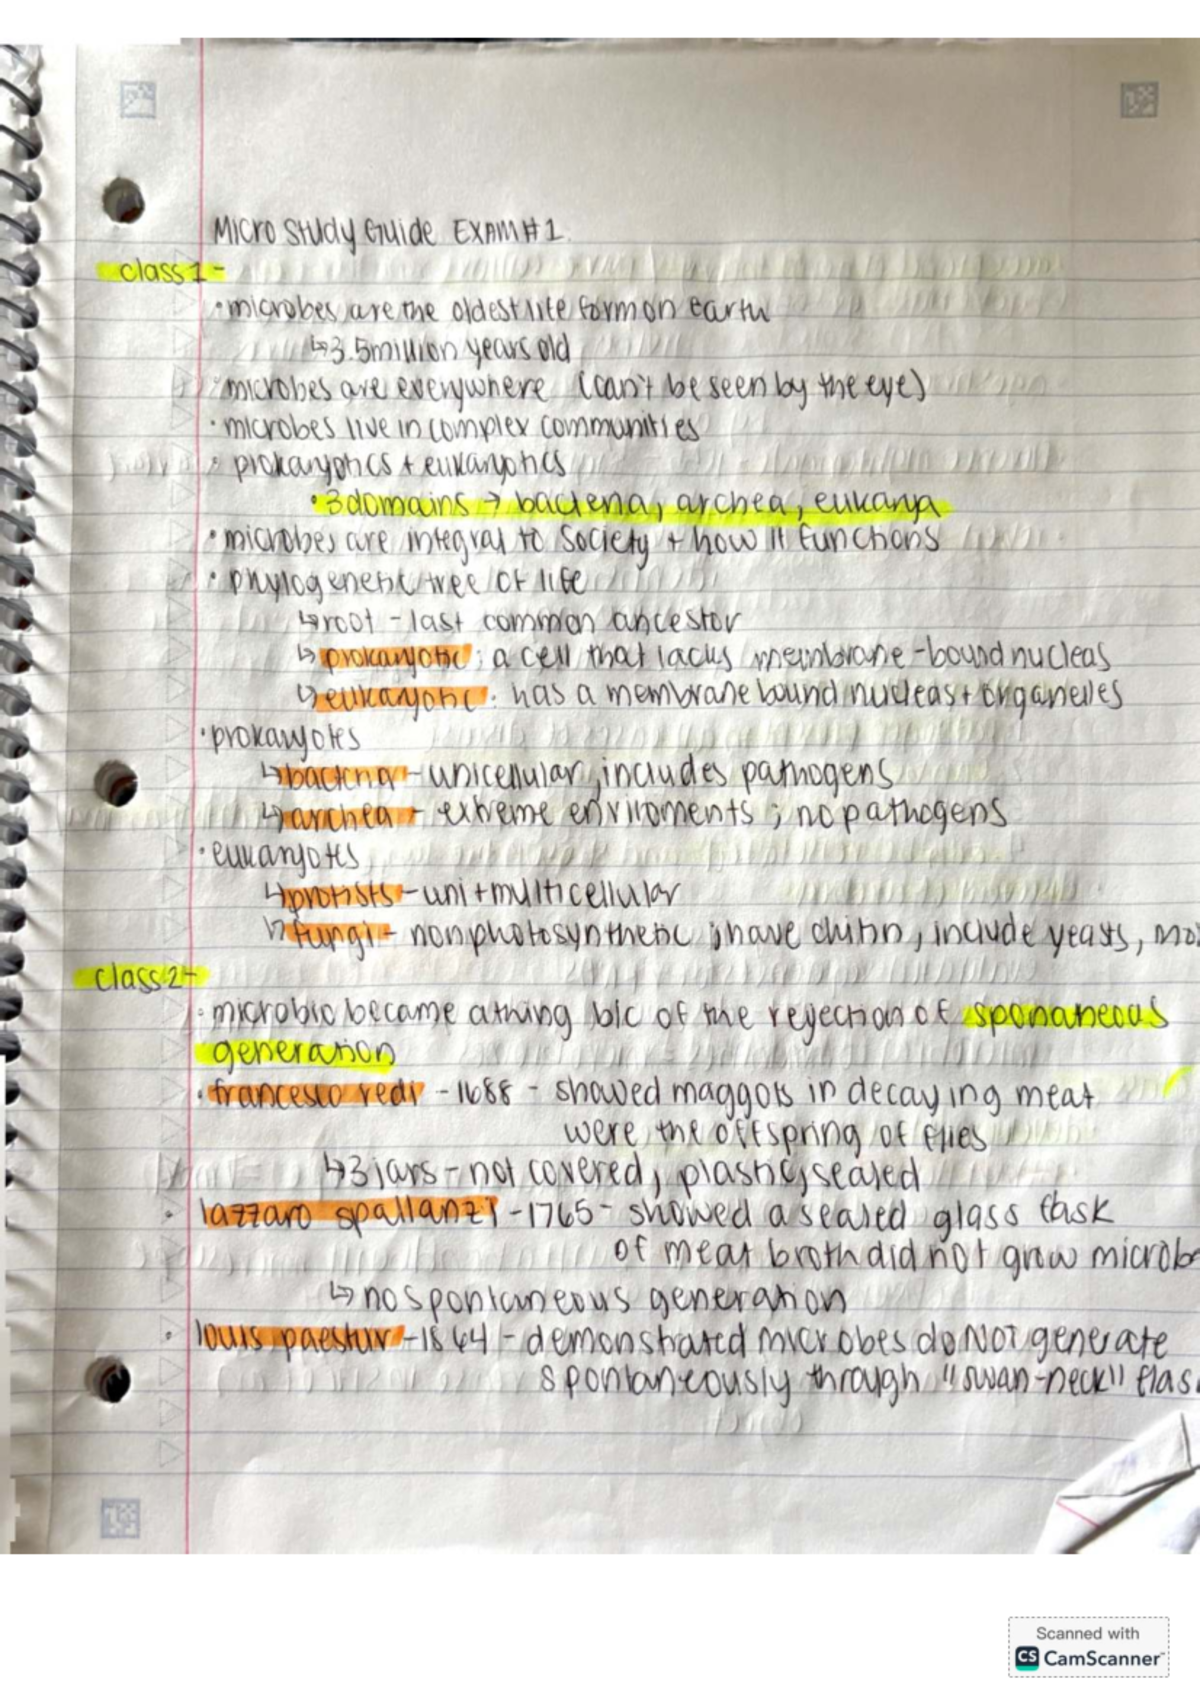 Micro Study Guide Exam #1
class 1 -
· microbes are the oldest life form on earth
↳ 3.5 million years old
· microbes are everywhere (can't be seen by the eye)
· microbes live in complex communities
· prokaryotics + eukaryotics
· 3 domains → bacteria, archea, eukarya
· microbes are integral to society + how it functions
· phylogenetic tree of life
↳ root - last common ancestor
↳ prokaryotic: a cell that lacks membrane-bound nucleas
↳ eukaryotic: has a membrane bound nucleas + organelles
· prokaryotes
↳ bacteria - unicellular, includes pathogens
↳ archea - extreme enviroments ; no pathogens
· eukaryotes
↳ protists - uni + multicellular
↳ fungi - nonphotosynthetic ; have chitin, include yeasts,
class 2 -
· microbio became a thing b/c of the rejection of sponaneous
generation
· francesco redi - 1688 - showed maggots in decaying meat
were the offspring of flies
↳ 3 jars - not covered, plastic, sealed
· lazzaro spallanzi - 1765 - showed a sealed glass flask
of meat broth did not grow microbe
↳ no spontaneous generation
· louis paestur - 1864 - demonstrated microbes do NOT generate
spontaneously through "swan-neck" flas
Scanned with
CS CamScanner